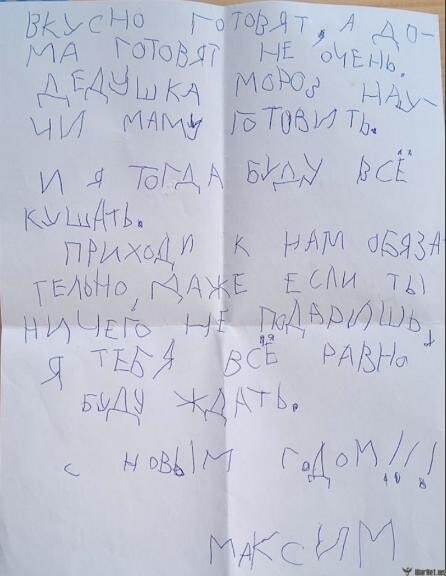 ВКУСНО ГОТОВЯТ, А ДО-
МА ГОТОВЯТ НЕ ОЧЕНЬ.
ДЕДУШКА МОРОЗ НАУ-
ЧИ МАМУ ГОТОВИТЬ.
И Я ТОГДА БУДУ ВСЁ
КУШАТЬ.
ПРИХОДИ К НАМ ОБЯЗА
ТЕЛЬНО, ДАЖЕ ЕСЛИ ТЫ
НИЧЕГО НЕ ПОДАРИШЬ,
Я ТЕБЯ ВСЁ РАВНО
БУДУ ЖДАТЬ.
С НОВЫМ ГОДОМ!!!
МАКСИМ